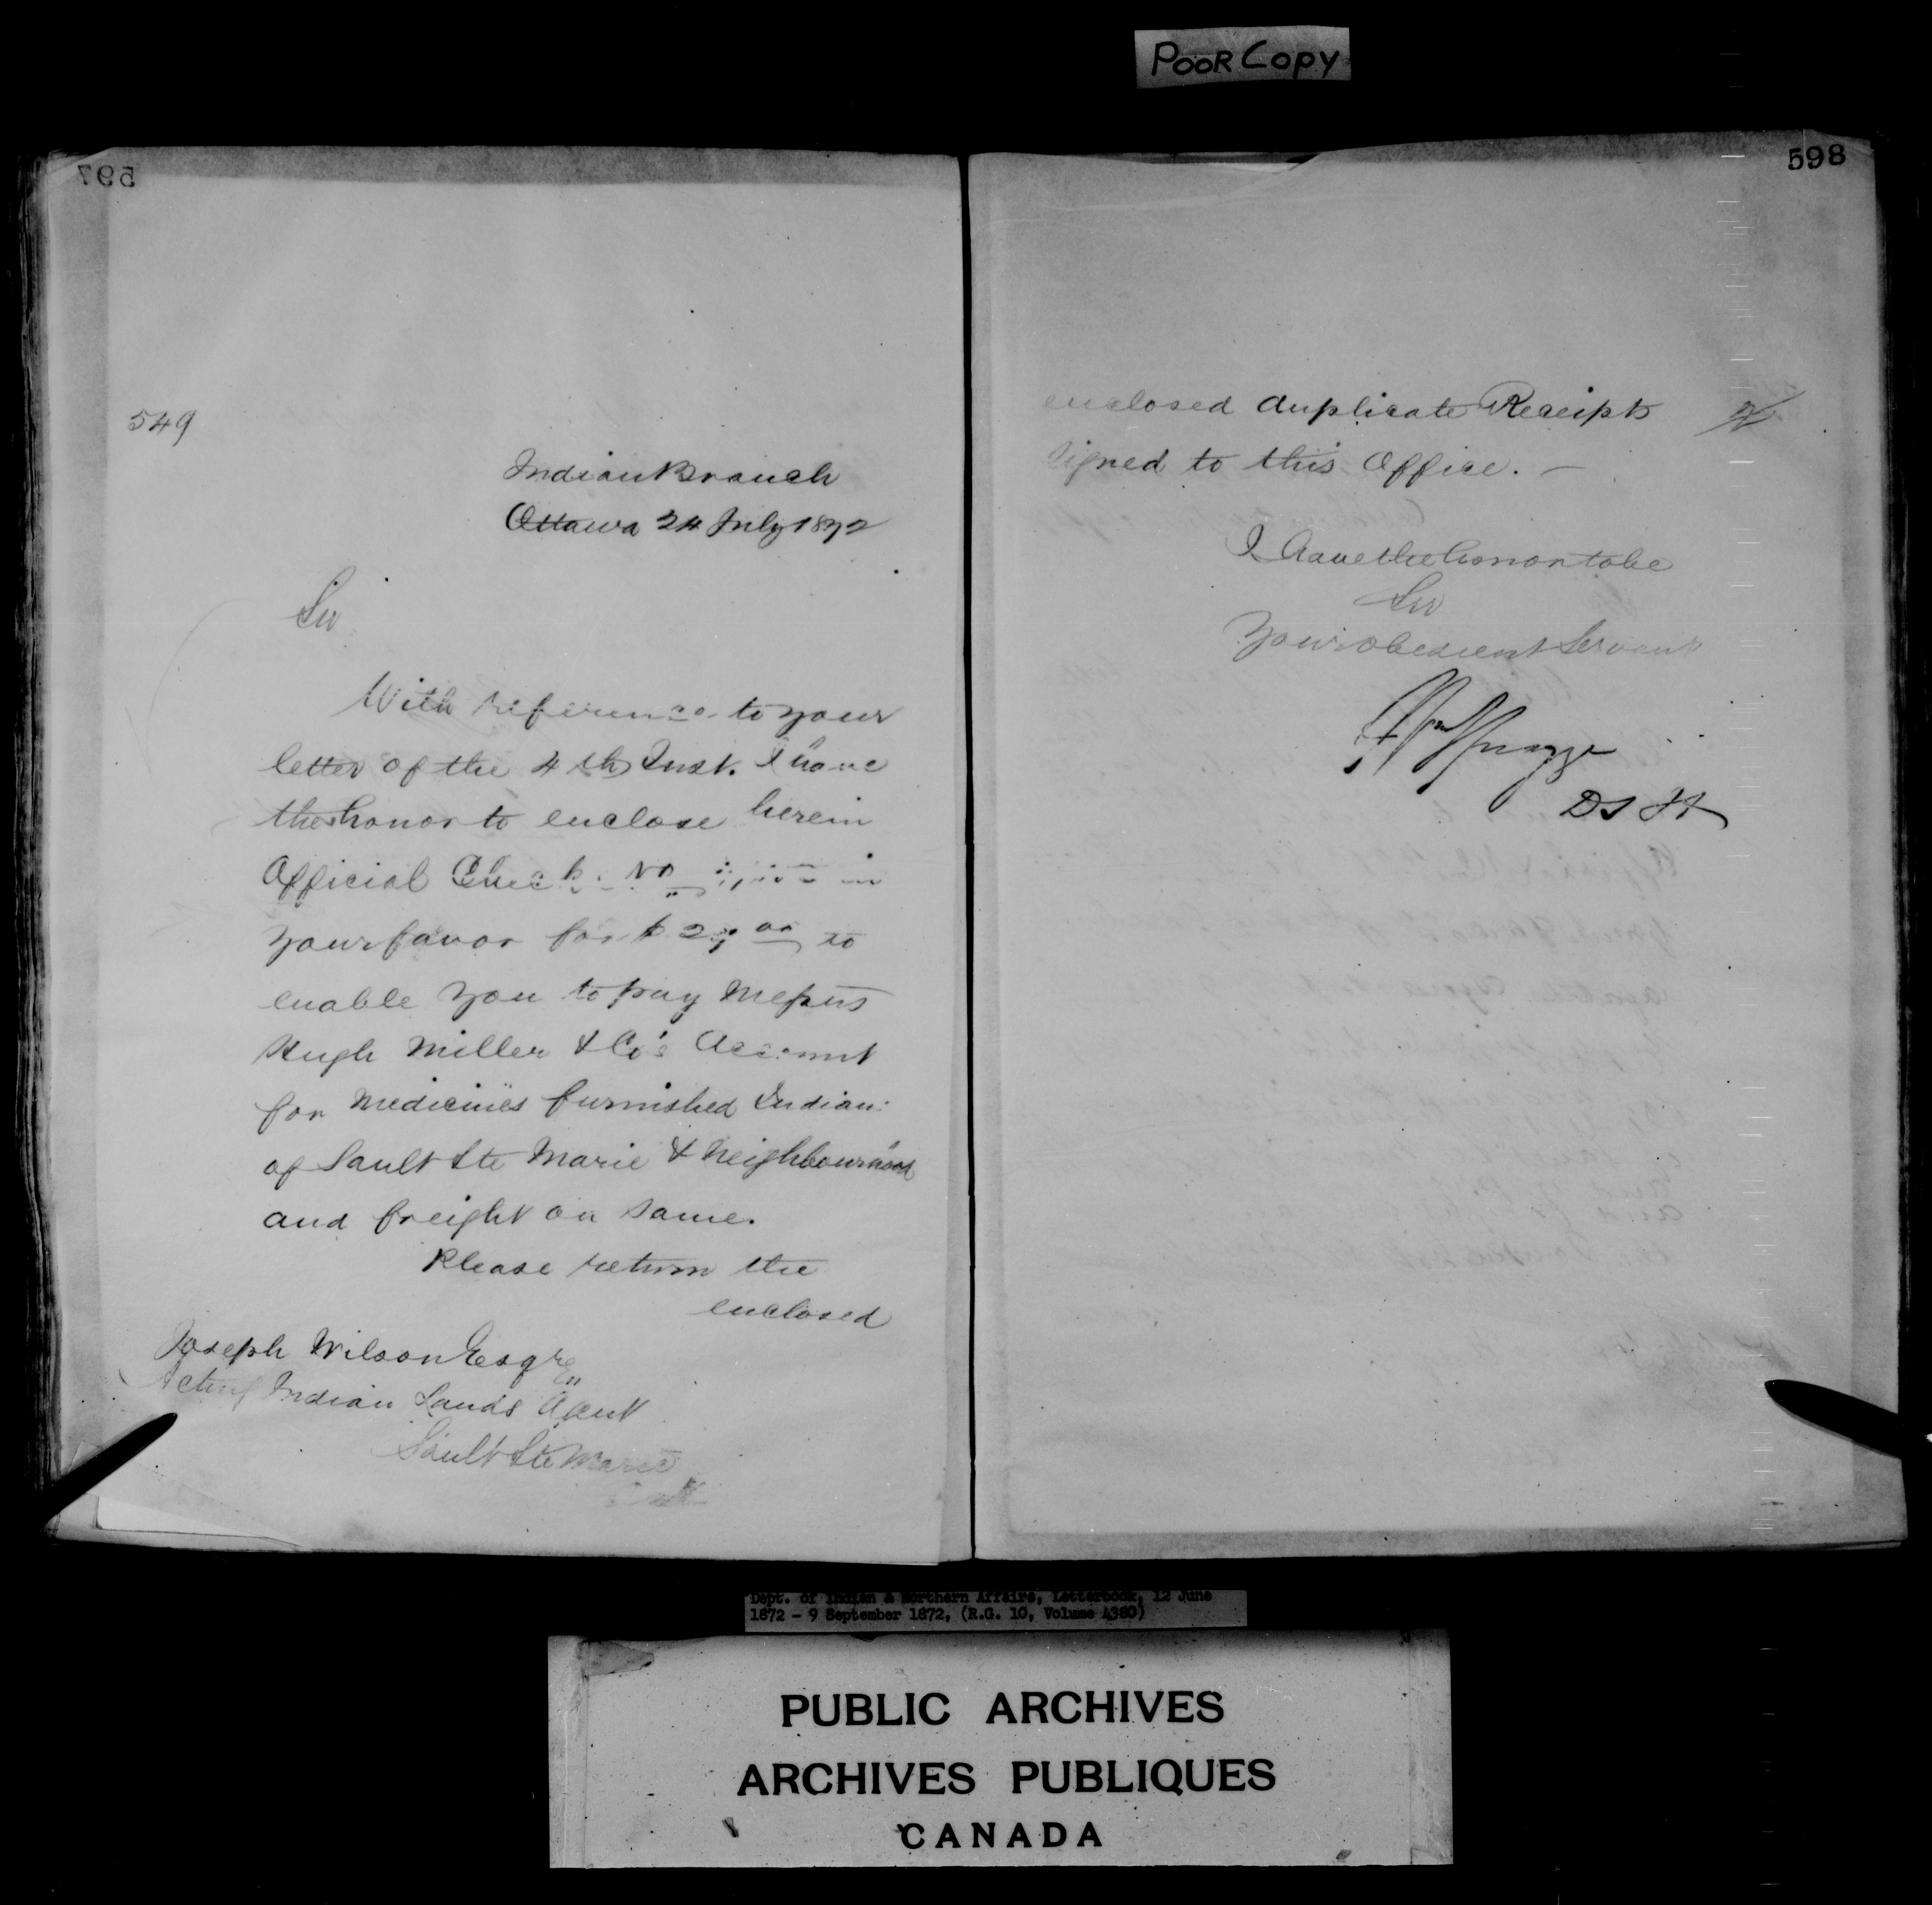 POOR COPY
597
549
Indian Branch
Ottawa 24 July 1872
Sir
With reference to your
letter of the 4th Inst. I have
the honor to enclose herein
Official Check No in
your favor for $ to
enable you to pay Messrs
Hugh Miller & Co's Account
for Medicines furnished Indians
of Sault Ste Marie & Neighbourhood
and freight on same.
Please return the
enclosed
Joseph Wilson Esqre
Acting Indian Lands Agent
Sault Ste Marie
598
enclosed duplicate Receipts
signed to this Office. —
I have the honor to be
Sir
Your obedient Servant
Spragge
Dept. of Indian & Northern Affairs, Letterbook, 12 June
1872 - 9 September 1872, (R.G. 10, Volume 4380)
PUBLIC ARCHIVES
ARCHIVES PUBLIQUES
CANADA